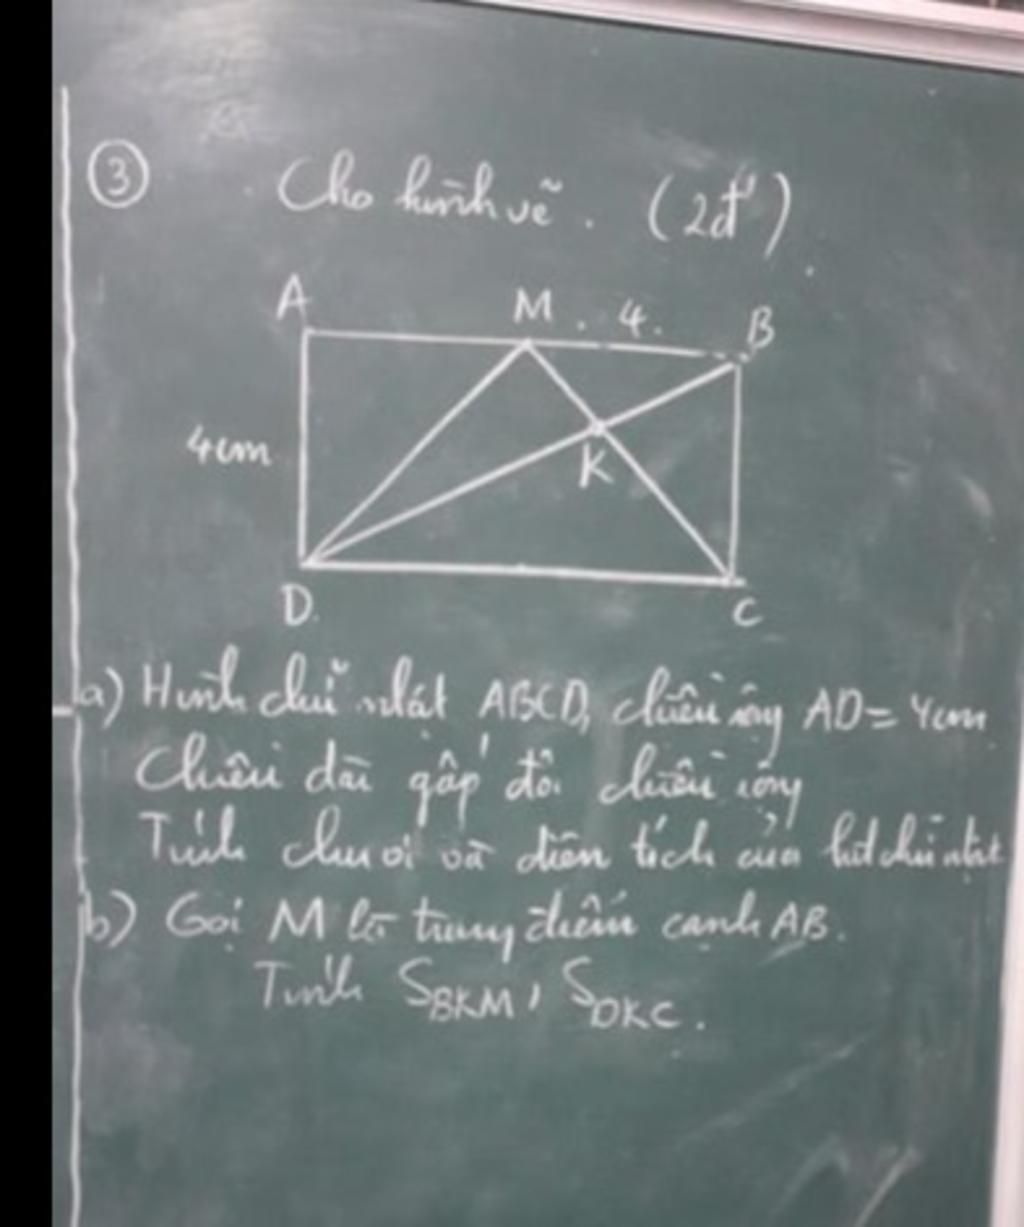 ③ Cho hình vẽ. (2đ)
A M . 4. B
4cm
K
D. C
a) Hình chữ nhật ABCD, chiều rộng AD = 4cm
Chiều dài gấp đôi chiều rộng
Tính chu vi và diện tích của hình chữ nhật
b) Gọi M là trung điểm cạnh AB.
Tính SBKM, SDKC.